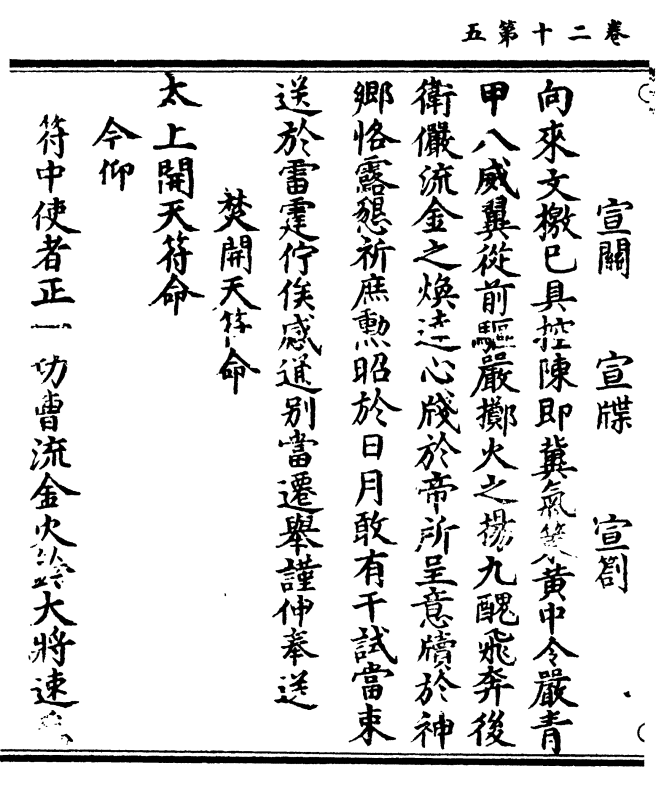 卷二十第五
宣關 宣牒 宣劄
向來文檄已具控陳即冀氣黃中令嚴青
甲八威翼從前驅嚴擲火之揚九醜飛奔後
衛儼流金之煥逹心牋於帝所呈意牘於神
鄉恪露懇祈庶勳昭於日月敢有干試當束
送於雷霆佇俟感通別當遷舉謹伸奉送
焚開天符命
太上開天符命
今仰
符中使者正一功曹流金火鈴大將速